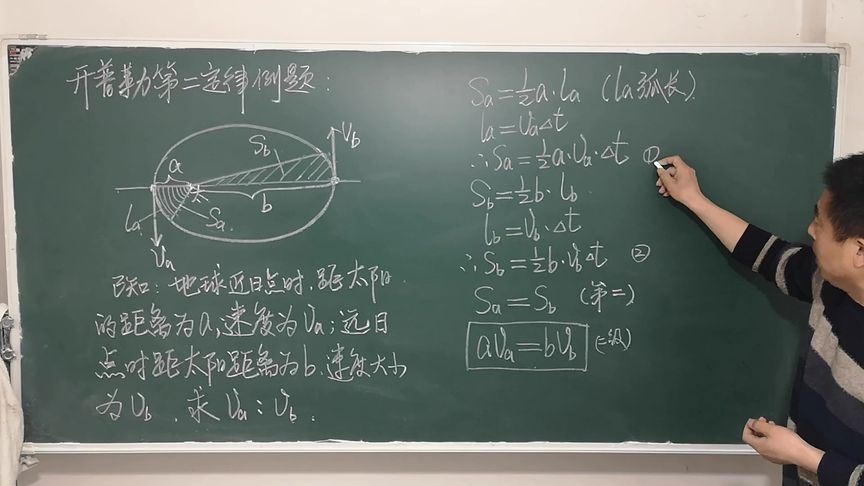 开普勒第二定律例题:
a
S_b
V_b
l_a
S_a
b
V_a
已知:地球近日点时,距太阳
的距离为a,速度为V_a;远日
点时距太阳距离为b.速度大小
为V_b.求V_a:V_b.
S_a=½a·l_a (l_a弧长)
l_a=V_aΔt
∴S_a=½a·V_a·Δt ①
S_b=½b·l_b
l_b=V_b·Δt
∴S_b=½b·V_bΔt ②
S_a=S_b (第二)
aV_a=bV_b (二级)